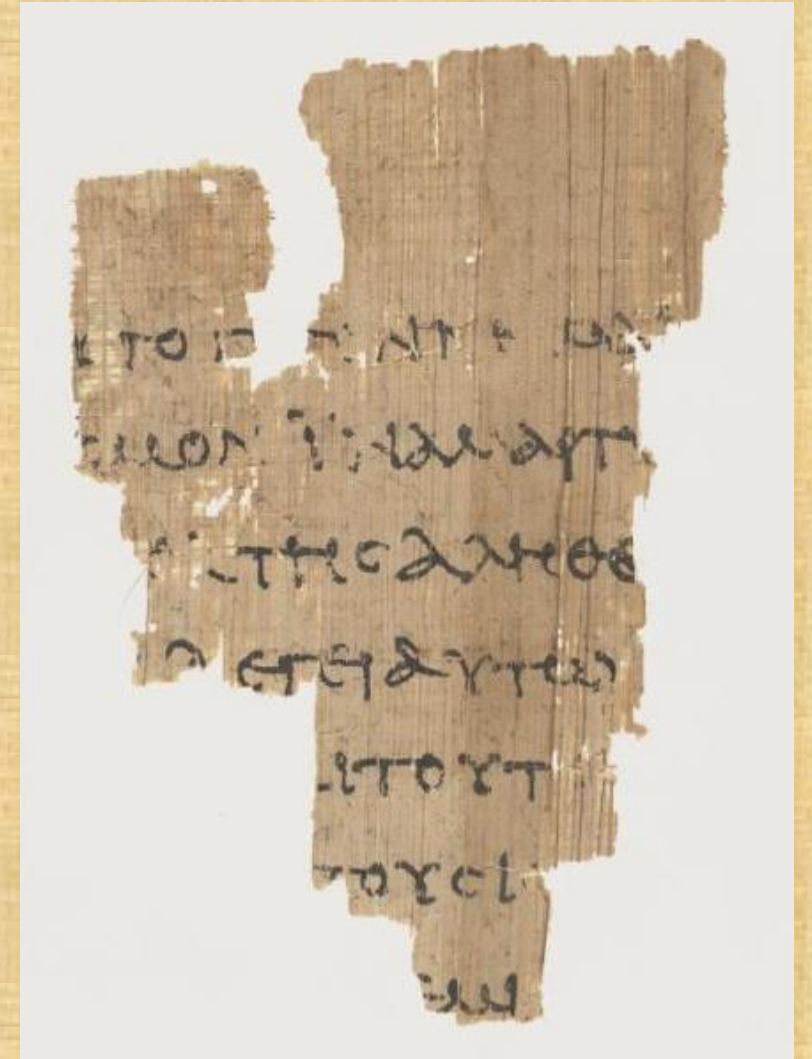 ΤΟ Γ
ϹΜΟΝ ΙΝΑ ΜΑΡΤΥ
ΤΗϹ ΑΛΗΘΕ
ΛΕΓΕΙ ΑΥΤΩ
Ι ΤΟΥΤ
ΤΟΥϹ Ι
ΕΜΙ